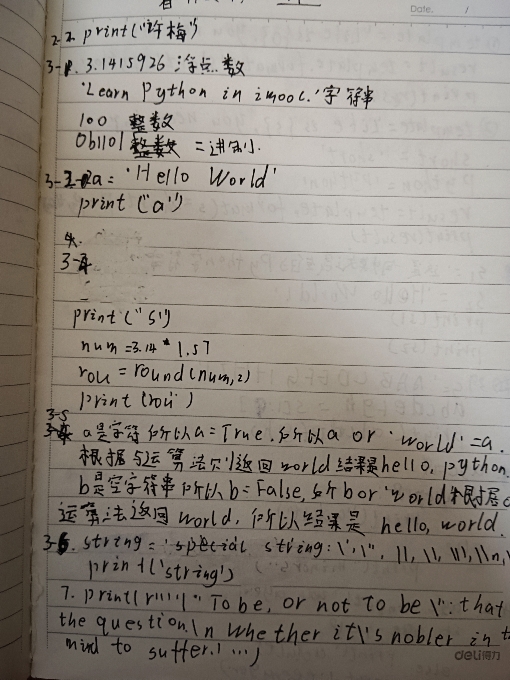 Date.
2-2. print("许梅")
3-1. 3.1415926 浮点数
'Learn Python in imooc.' 字符串
100 整数
0b1101 整数 二进制.
3-2 a = 'Hello World'
print ('a')
3-4
print ("51")
num = 3.14 * 1.57
rou = round(num,2)
print (rou)
3-5
a是字符 所以a=True.所以a or 'world'=a.
根据与运算法则返回world 结果是hello, python.
b是空字符串所以b=False, b or 'world 根据
运算法返回world, 所以结果是 hello, world.
3-6. string = 'special string: \', \", \\, \\, \\\, \\n,
print ('string')
7. print(r''''" To be, or not to be \": that
the question.\n whether it\'s nobler in
mind to suffer. ''')
deli得力